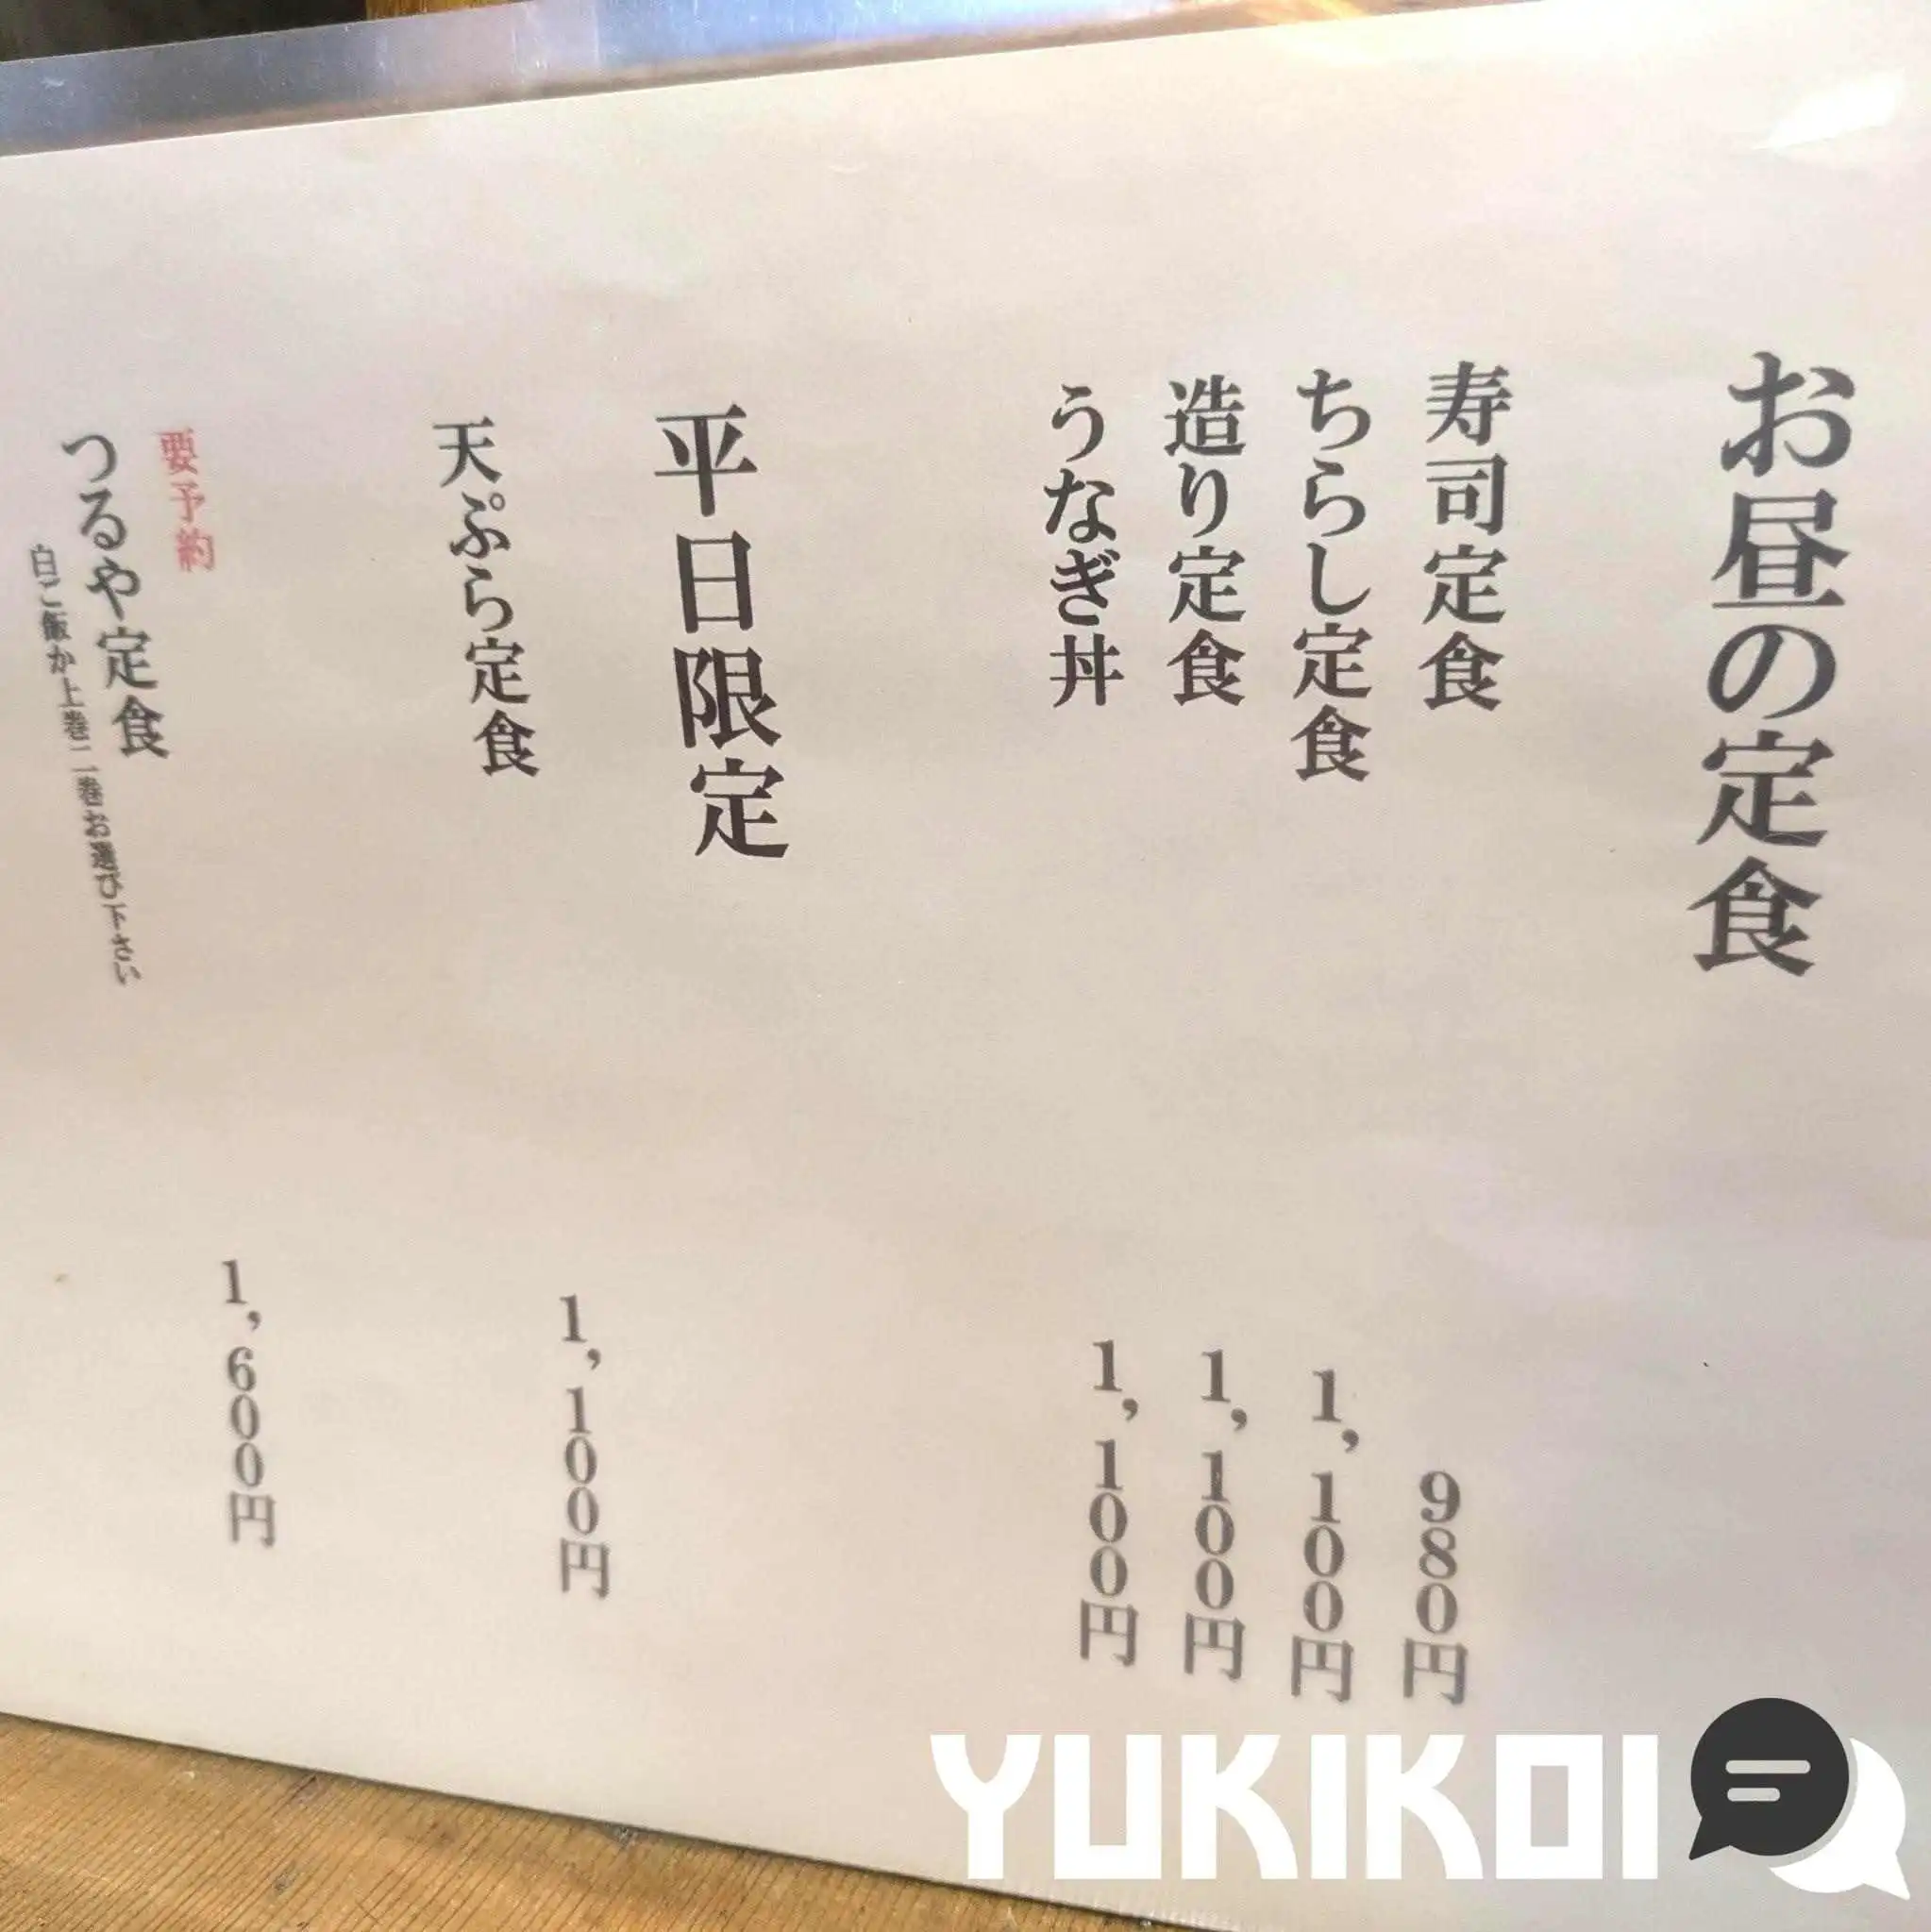 お昼の定食
寿司定食 980円
ちらし定食 1,100円
造り定食 1,100円
うなぎ丼 1,100円
平日限定
天ぷら定食 1,100円
要予約
つるや定食 1,600円
白ご飯か上巻二巻お選び下さい
YUKIKOI